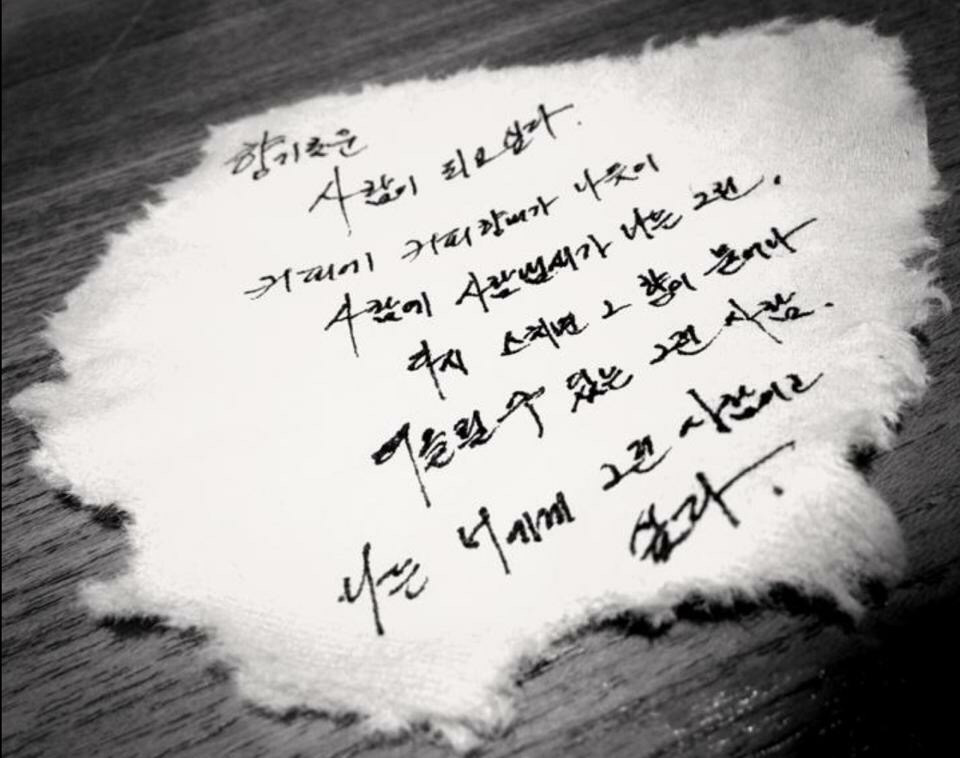 향기로운
사람이 되고 싶다.
커피에 커피향내가 나듯이
사람에 사람냄새가 나는 그런.
다시 스치면 그 향이 묻어나
어울릴 수 있는 그런 사람.
나는 너에게 그런 사람이고
싶다.